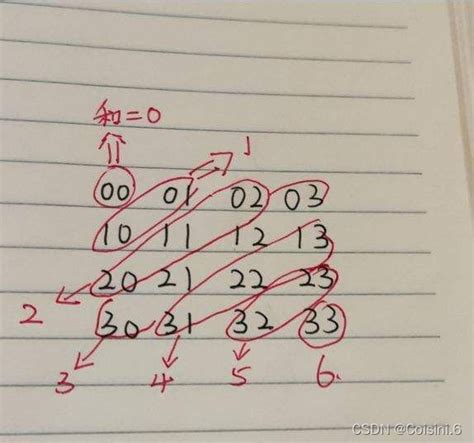 和=0
1
00 01 02 03
10 11 12 13
20 21 22 23
2
30 31 32 33
3 4 5 6.
CSDN @Coisini.6